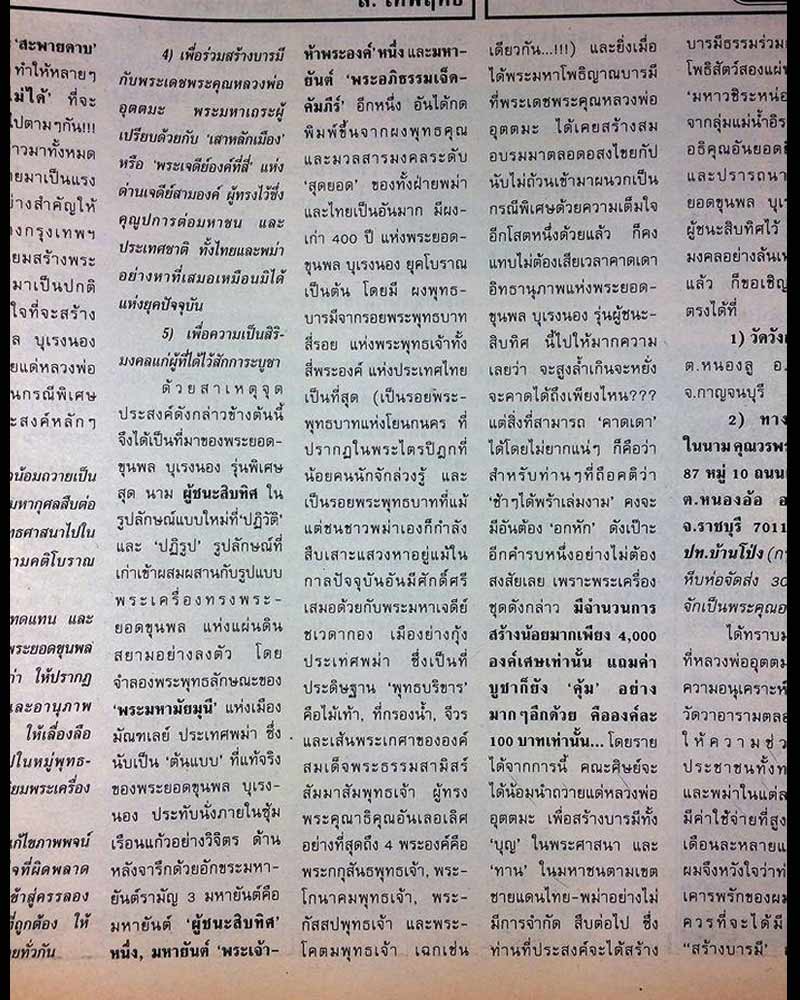 ส. เทพฤทธิ์
‘สะพายดาบ’
ทำให้หลายๆ
ไม่ได้’ ที่จะ
ไปตามๆกัน!!!
าวมาทั้งหมด
ายมาเป็นแรง
ย่างสำคัญให้
งกรุงเทพฯ
ยมสร้างพระ
มาเป็นปกติ
ใจที่จะสร้าง
ล บุเรงนอง
ยแด่หลวงพ่อ
นกรณีพิเศษ
ะสงค์หลักๆ
น้อมถวายเป็น
มหากุศลสืบต่อ
ทธศาสนาไปใน
ามคติโบราณ
ทดแทน และ
พระยอดขุนพล
่า ให้ปรากฏ
และอานุภาพ
ให้เลื่องลือ
ปในหมู่พุทธ-
ยมพระเครื่อง
แก้ไขภาพพจน์
ใจที่ผิดพลาด
ข้าสู่ครรลอง
ที่ถูกต้อง ให้
ยทั่วกัน
4) เพื่อร่วมสร้างบารมี
กับพระเดชพระคุณหลวงพ่อ
อุตตมะ พระมหาเถระผู้
เปรียบด้วยกับ ‘เสาหลักเมือง’
หรือ ‘พระเจดีย์องค์ที่สี่’ แห่ง
ด่านเจดีย์สามองค์ ผู้ทรงไว้ซึ่ง
คุณูปการต่อมหาชน และ
ประเทศชาติ ทั้งไทยและพม่า
อย่างหาที่เสมอเหมือนมิได้
แห่งยุคปัจจุบัน
5) เพื่อความเป็นสิริ-
มงคลแก่ผู้ที่ได้ไว้สักการะบูชา
ด้วยสาเหตุจุด
ประสงค์ดังกล่าวข้างต้นนี้
จึงได้เป็นที่มาของพระยอด-
ขุนพล บุเรงนอง รุ่นพิเศษ
สุด นาม ผู้ชนะสิบทิศ ใน
รูปลักษณ์แบบใหม่ที่‘ปฏิวัติ’
และ ‘ปฏิรูป’ รูปลักษณ์ที่
เก่าเข้าผสมผสานกับรูปแบบ
พระเครื่องทรงพระ-
ยอดขุนพล แห่งแผ่นดิน
สยามอย่างลงตัว โดย
จำลองพระพุทธลักษณะของ
‘พระมหามัยมุนี’ แห่งเมือง
มัณฑเลย์ ประเทศพม่า ซึ่ง
นับเป็น ‘ต้นแบบ’ ที่แท้จริง
ของพระยอดขุนพล บุเรง-
นอง ประทับนั่งภายในซุ้ม
เรือนแก้วอย่างวิจิตร ด้าน
หลังจารึกด้วยอักขระมหา-
ยันต์รามัญ 3 มหายันต์คือ
มหายันต์ ‘ผู้ชนะสิบทิศ’
หนึ่ง, มหายันต์ ‘พระเจ้า-
ห้าพระองค์’ หนึ่ง และมหา-
ยันต์ ‘พระอภิธรรมเจ็ด-
คัมภีร์’ อีกหนึ่ง อันได้กด
พิมพ์ขึ้นจากผงพุทธคุณ
และมวลสารมงคลระดับ
‘สุดยอด’ ของทั้งฝ่ายพม่า
และไทยเป็นอันมาก มีผง-
เก่า 400 ปี แห่งพระยอด-
ขุนพล บุเรงนอง ยุคโบราณ
เป็นต้น โดยมี ผงพุทธ-
บารมีจากรอยพระพุทธบาท
สี่รอย แห่งพระพุทธเจ้าทั้ง
สี่พระองค์ แห่งประเทศไทย
เป็นที่สุด (เป็นรอยพระ-
พุทธบาทแห่งโยนกนคร ที่
ปรากฏในพระไตรปิฎกที่
น้อยคนนักจักล่วงรู้ และ
เป็นรอยพระพุทธบาทที่แม้
แต่ชนชาวพม่าเองก็กำลัง
สืบเสาะแสวงหาอยู่แม้ใน
กาลปัจจุบันอันมีศักดิ์ศรี
เสมอด้วยกับพระมหาเจดีย์
ชเวดากอง เมืองย่างกุ้ง
ประเทศพม่า ซึ่งเป็นที่
ประดิษฐาน ‘พุทธบริขาร’
คือไม้เท้า, ที่กรองน้ำ, จีวร
และเส้นพระเกศาขององค์
สมเด็จพระธรรมสามิสร์
สัมมาสัมพุทธเจ้า ผู้ทรง
พระคุณาธิคุณอันเลอเลิศ
อย่างที่สุดถึง 4 พระองค์คือ
พระกกุสันธพุทธเจ้า, พระ-
โกนาคมพุทธเจ้า, พระ-
กัสสปพุทธเจ้า และพระ-
โคตมพุทธเจ้า เฉกเช่น
เดียวกัน...!!!) และยิ่งเมื่อ
ได้พระมหาโพธิญาณบารมี
ที่พระเดชพระคุณหลวงพ่อ
อุตตมะ ได้เคยสร้างสม
อบรมมาตลอดอสงไขยกัป
นับไม่ถ้วนเข้ามาผนวกเป็น
กรณีพิเศษด้วยความเต็มใจ
อีกโสตหนึ่งด้วยแล้ว ก็คง
แทบไม่ต้องเสียเวลาคาดเดา
อิทธานุภาพแห่งพระยอด-
ขุนพล บุเรงนอง รุ่นผู้ชนะ-
สิบทิศ นี้ไปให้มากความ
เลยว่า จะสูงล้ำเกินจะหยั่ง
จะคาดได้ถึงเพียงไหน???
แต่สิ่งที่สามารถ ‘คาดเดา’
ได้โดยไม่ยากแน่ๆ ก็คือว่า
สำหรับท่านๆที่ถือคติว่า
‘ช้าๆได้พร้าเล่มงาม’ คงจะ
มีอันต้อง ‘อกหัก’ ดังเป๊าะ
อีกคำรบหนึ่งอย่างไม่ต้อง
สงสัยเลย เพราะพระเครื่อง
ชุดดังกล่าว มีจำนวนการ
สร้างน้อยมากเพียง 4,000
องค์เศษเท่านั้น แถมค่า
บูชาก็ยัง ‘คุ้ม’ อย่าง
มากๆอีกด้วย คือองค์ละ
100 บาทเท่านั้น... โดยราย
ได้จากการนี้ คณะศิษย์จะ
ได้น้อมนำถวายแด่หลวงพ่อ
อุตตมะ เพื่อสร้างบารมีทั้ง
‘บุญ’ ในพระศาสนา และ
‘ทาน’ ในมหาชนตามเขต
ชายแดนไทย-พม่าอย่างไม่
มีการจำกัด สืบต่อไป ซึ่ง
ท่านที่ประสงค์จะได้สร้าง
บารมีธรรมร่วม
โพธิสัตว์สองแผ่น
‘มหาวชิระหน่อ
จากลุ่มแม่น้ำอิร
อธิคุณอันยอดยิ
และปรารถนา
ยอดขุนพล บุเ
ผู้ชนะสิบทิศไว้
มงคลอย่างล้นเห
แล้ว ก็ขอเชิญ
ตรงได้ที่
1) วัดวัง
ต.หนองลู อ.
จ.กาญจนบุรี
2) ทาง
ในนาม คุณวรพ
87 หมู่ 10 ถนน
ต.หนองอ้อ อ
จ.ราชบุรี 7011
ปท.บ้านโป่ง (ก
หีบห่อจัดส่ง 30
จักเป็นพระคุณอ
ได้ทราบม
ที่หลวงพ่ออุตตม
ความอนุเคราะห์
วัดวาอารามตลอ
ให้ความช่ว
ประชาชนทั้งท
และพม่าในแต่ล
มีค่าใช้จ่ายที่สูง
เดือนละหลายแ
ผมจึงหวังใจว่าท่
เคารพรักของผม
ควรที่จะได้มี
“สร้างบารมี’